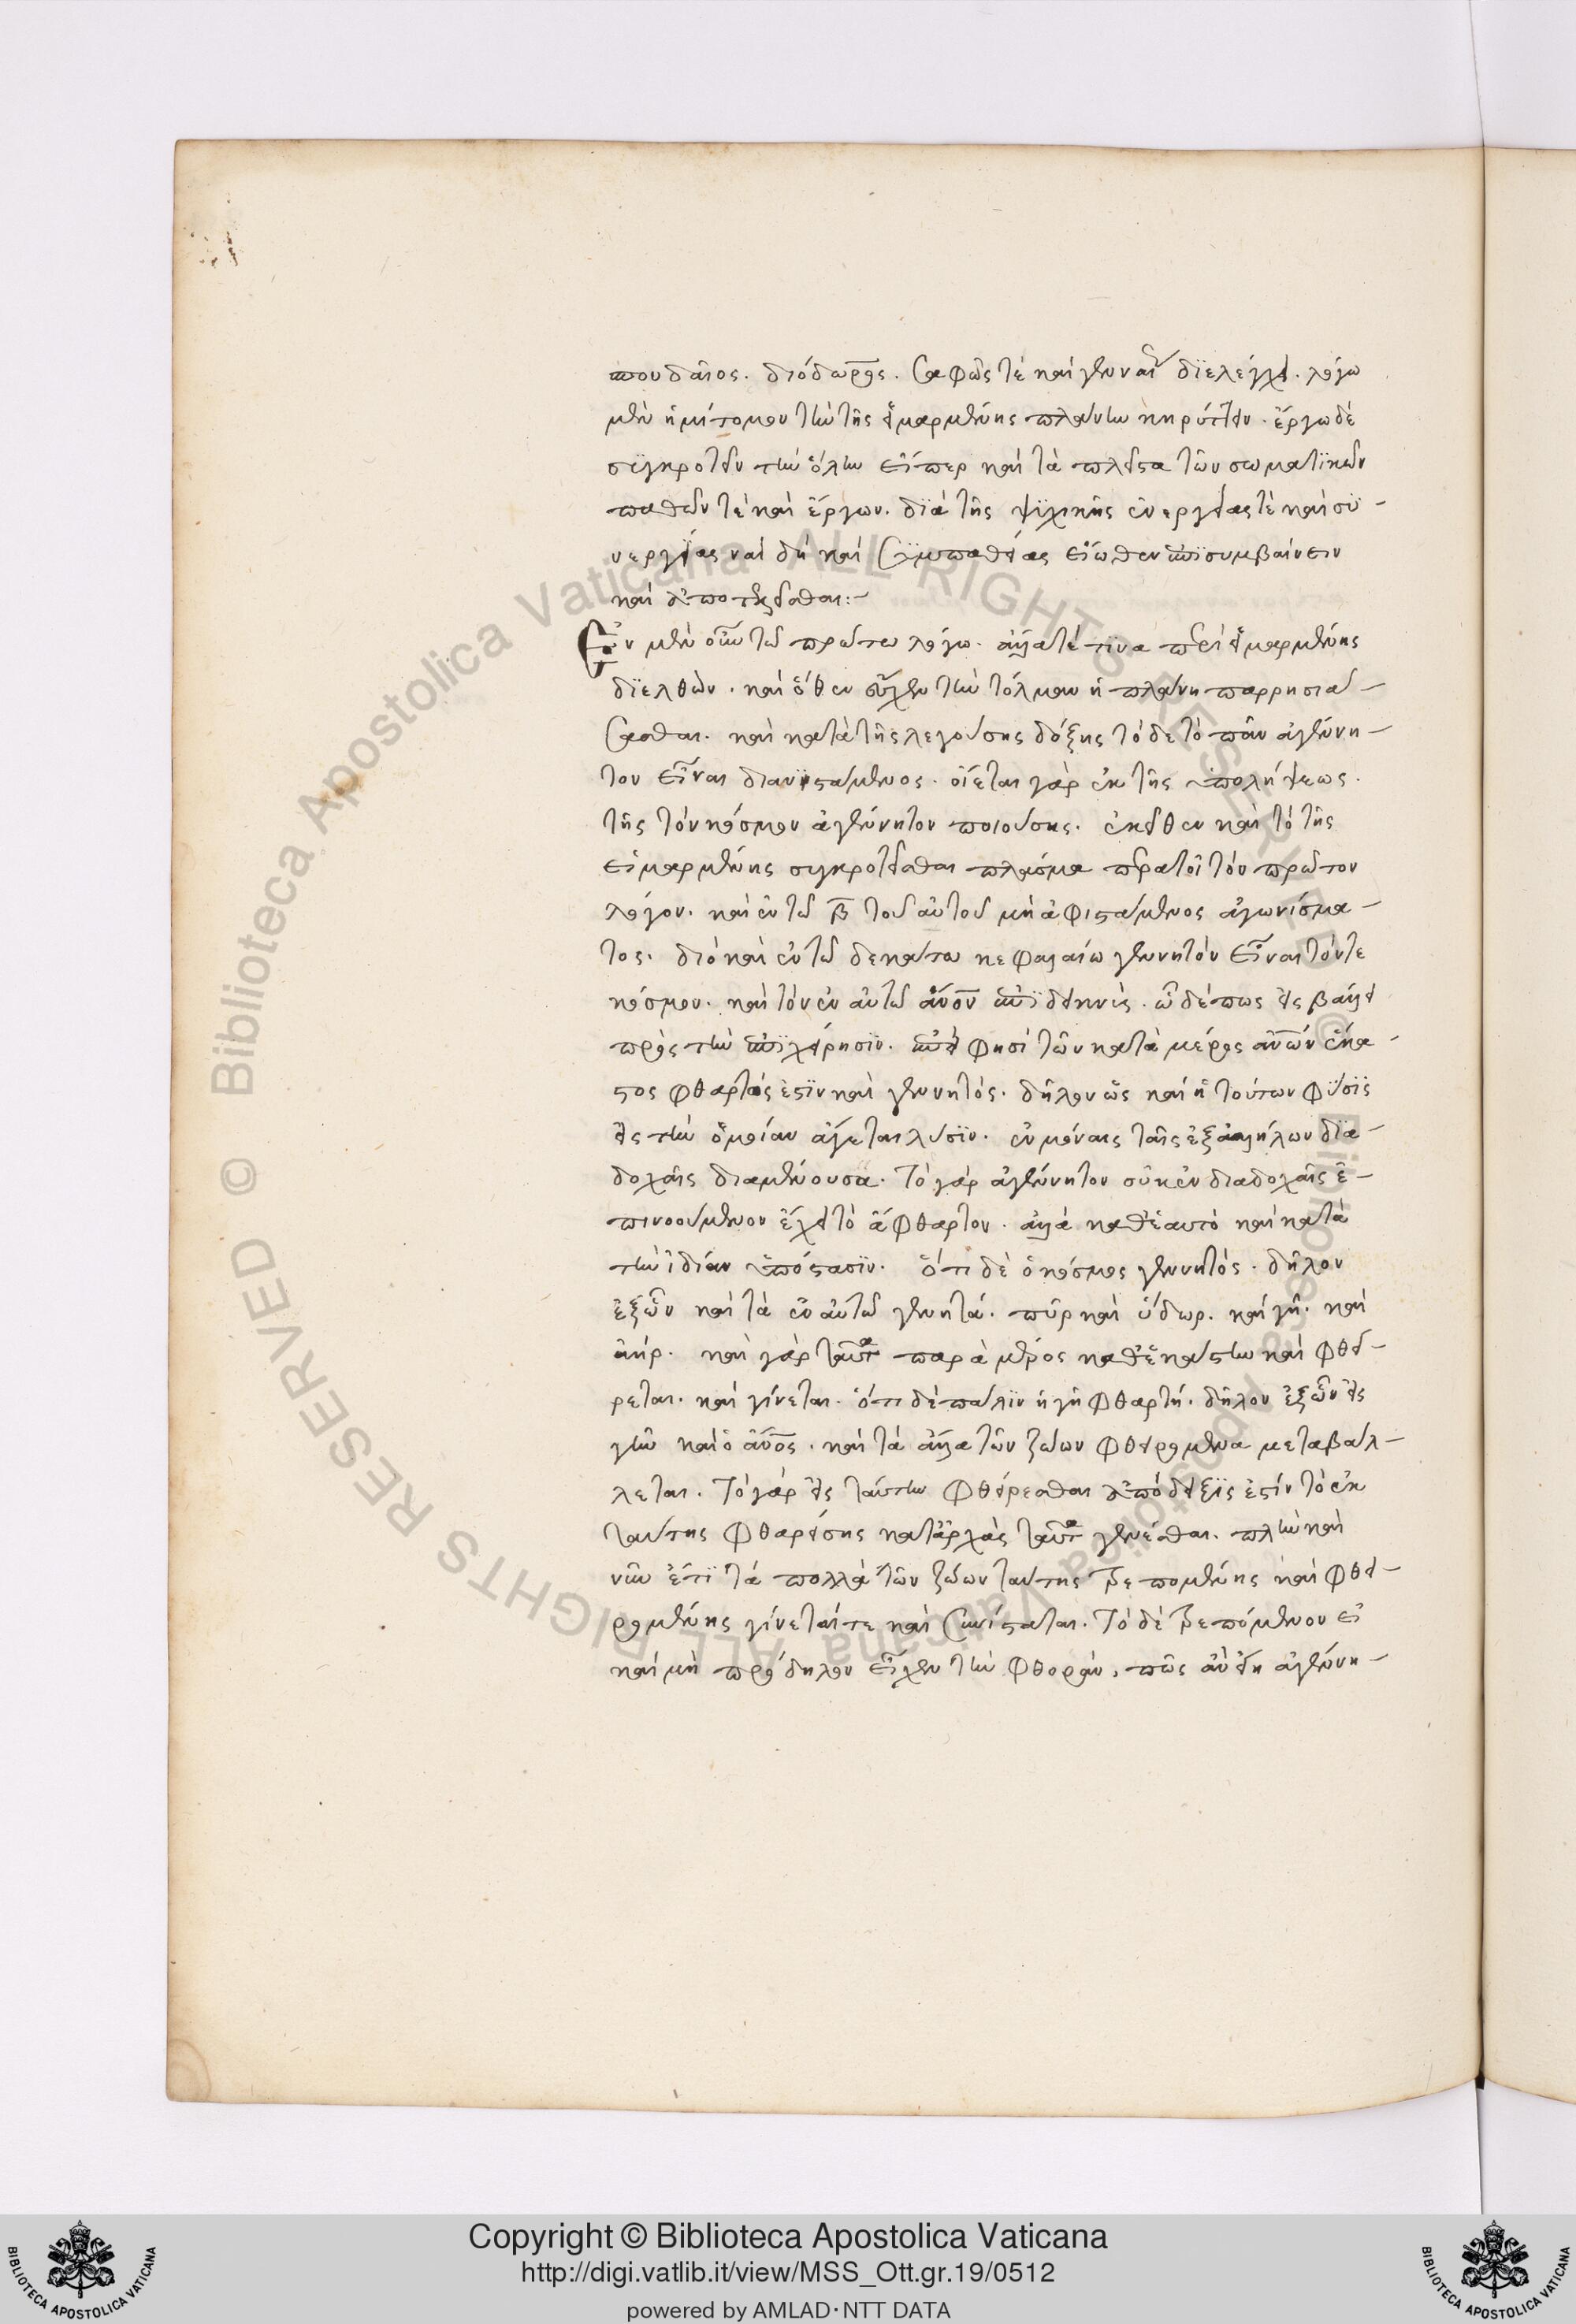 σπουδαῖος. διόδωρος. σαφῶς τὲ καὶ γενναί διελέγχει. λόγω
μὲν ἡμίτομον τὴν τῆς εἱμαρμένης πλάνην κηρύττειν. ἔργω δὲ
συγκροτεῖν τὴν ὅλην εἴπερ καὶ τὰ πλεῖστα τῶν σωματϊκῶν
παθῶν τὲ καὶ ἔργων. διὰ τῆς ψϋχικῆς ἐνεργείας τὲ καὶ συ-
νεργείας ναὶ δὴ καὶ συμπαθείας εἴωθεν ἐπισυμβαίνειν
καὶ ἀποτελεῖσθαι:-
Ἐν μὲν οὖν τῶ πρώτω λόγω. ἄλλα τέ τινα περὶ εἱμαρμένης
διελθὼν. καὶ ὅθεν ἔσχεν τὴν τόλμαν ἡ πλάνη παρρησιά-
σασθαι. καὶ κατὰ τῆς λεγούσης δόξης τόδε τὸ πᾶν ἀγέννη-
τον εἶναι διανϊστάμενος. οἴεται γὰρ ἐκ τῆς ὑπολήψεως.
τῆς τὸν κόσμον ἀγέννητον ποιούσης. ἐκεῖθεν καὶ τὸ τῆς
εἱμαρμένης συγκροτεῖσθαι πλάσμα περατοῖ τὸν πρῶτον
λόγον. καὶ ἐν τῶ β̅ τοῦ αὐτοῦ μὴ ἀφιστάμενος ἀγωνίσμα-
τος. διὸ καὶ ἐν τῶ δεκάτω κεφαλαίω γεννητὸν εἶναι τόν τε
κόσμον. καὶ τὸν ἐν αὐτῶ ἄνον ἐπϊδείκνυσ. ὧδέ πως εἰσβάλλει
πρὸς τὴν ἐπϊχείρησϊν. ἐπεὶ φησὶ τῶν κατὰ μέρος ἀνων ἕκα-
στος φθαρτός ἐστϊν καὶ γεννητός. δῆλον ὡς καὶ ἡ τούτων φύσϊς
εἰς τὴν ὁμοίαν ἄγεται λύσϊν. ἐν μόναις ταῖς ἐξ ἀλλήλων δϊα-
δοχαῖς διαμένουσα. Τὸ γὰρ ἀγέννητον οὐκ ἐν διαδοχαῖς ἐ-
πινοούμενον ἔχει τὸ ἄφθαρτον. ἀλλὰ καθ' ἑαυτὸ καὶ κατὰ
τὴν ἰδίαν ὑπόστασϊν. Ὅτι δὲ ὁ κόσμος γεννητός. δῆλον
ἐξ ὧν καὶ τὰ ἐν αὐτῶ γεννητά. πῦρ καὶ ὕδωρ. καὶ γῆ. καὶ
ἀὴρ. καὶ γὰρ ταῦτα παρὰ μέρος καθ' ἑκάστην καὶ φθεί-
ρεται. καὶ γίνεται. ὅτι δὲ πάλϊν ἡ γῆ φθαρτή. δῆλον ἐξ ὧν εἰς
γῆν καὶ ὁ ἄνος. καὶ τὰ ἄλλα τῶν ζώων φθειρόμενα μεταβάλ-
λεται. Τὸ γὰρ εἰς ταύτην φθείρεσθαι ἀπόδειξϊς ἐστίν τὸ ἐκ
ταύτης φθαρείσης κατ' ἀρχὰς ταῦτα γενέσθαι. πλὴν καὶ
νῦν ἔτϊ τὰ πολλὰ τῶν ζώων ταύτης τρεπομένης καὶ φθει-
ρομένης γίνεταί τε καὶ συνίσταται. Τὸ δὲ τρεπόμενον εἰ
καὶ μὴ πρόδηλον εἶχεν τὴν φθορὰν, πῶς ἂν εἴη ἀγέννη-
Copyright © Biblioteca Apostolica Vaticana
http://digi.vatlib.it/view/MSS_Ott.gr.19/0512
powered by AMLAD·NTT DATA